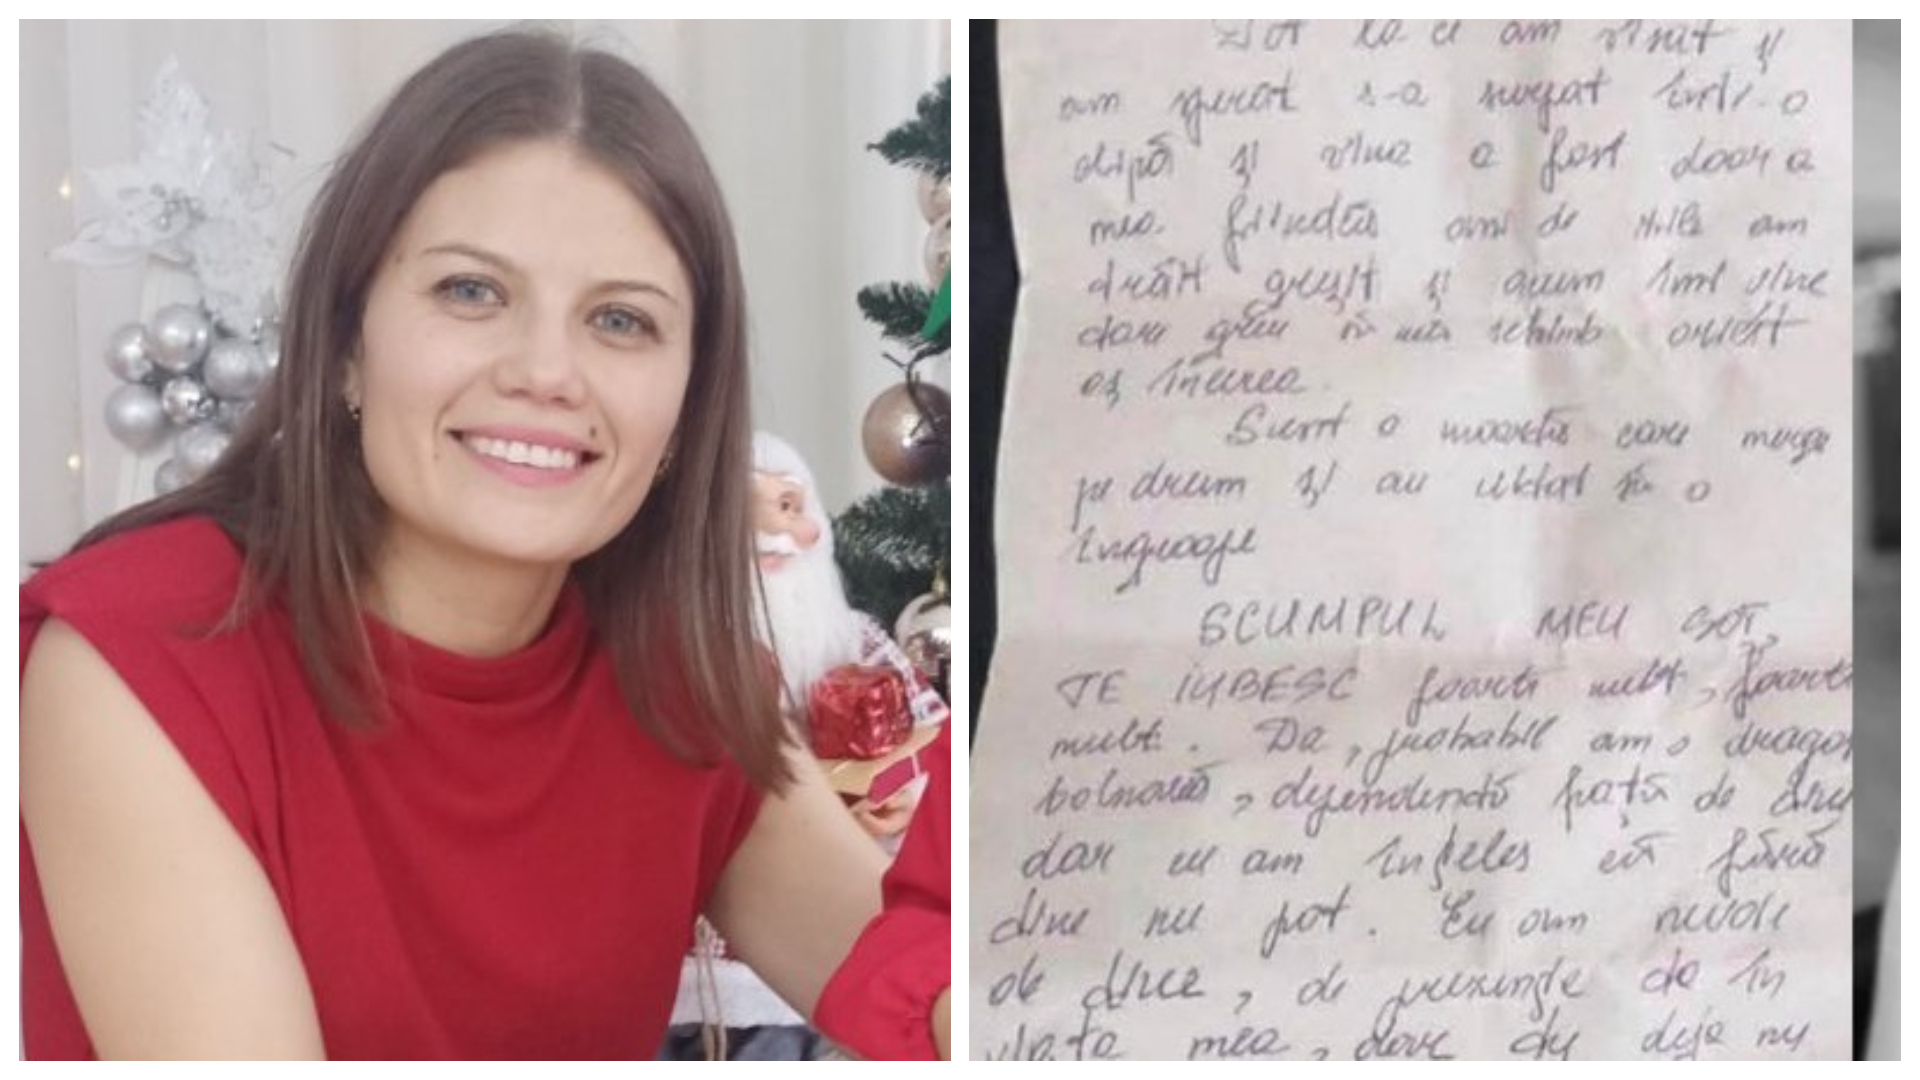 Tot la ce am visat și
am sperat s-a surpat într-o
clipă și vina e doar a
mea. fiindcă ani de zile am
trăit greșit și acum îmi vine
doar greu să mă schimb oricît
aș încerca.
Sunt o moartă care merge
pe drum și au uitat să o
îngroape
SCUMPUL MEU SOȚ,
TE IUBESC foarte mult, foarte
mult. Da, probabil am o dragos
bolnavă, dependentă față de tine
dar eu am înțeles că fără
tine nu pot. Eu am nevoie
de tine, de prezența ta în
viața mea, doar tu deja nu